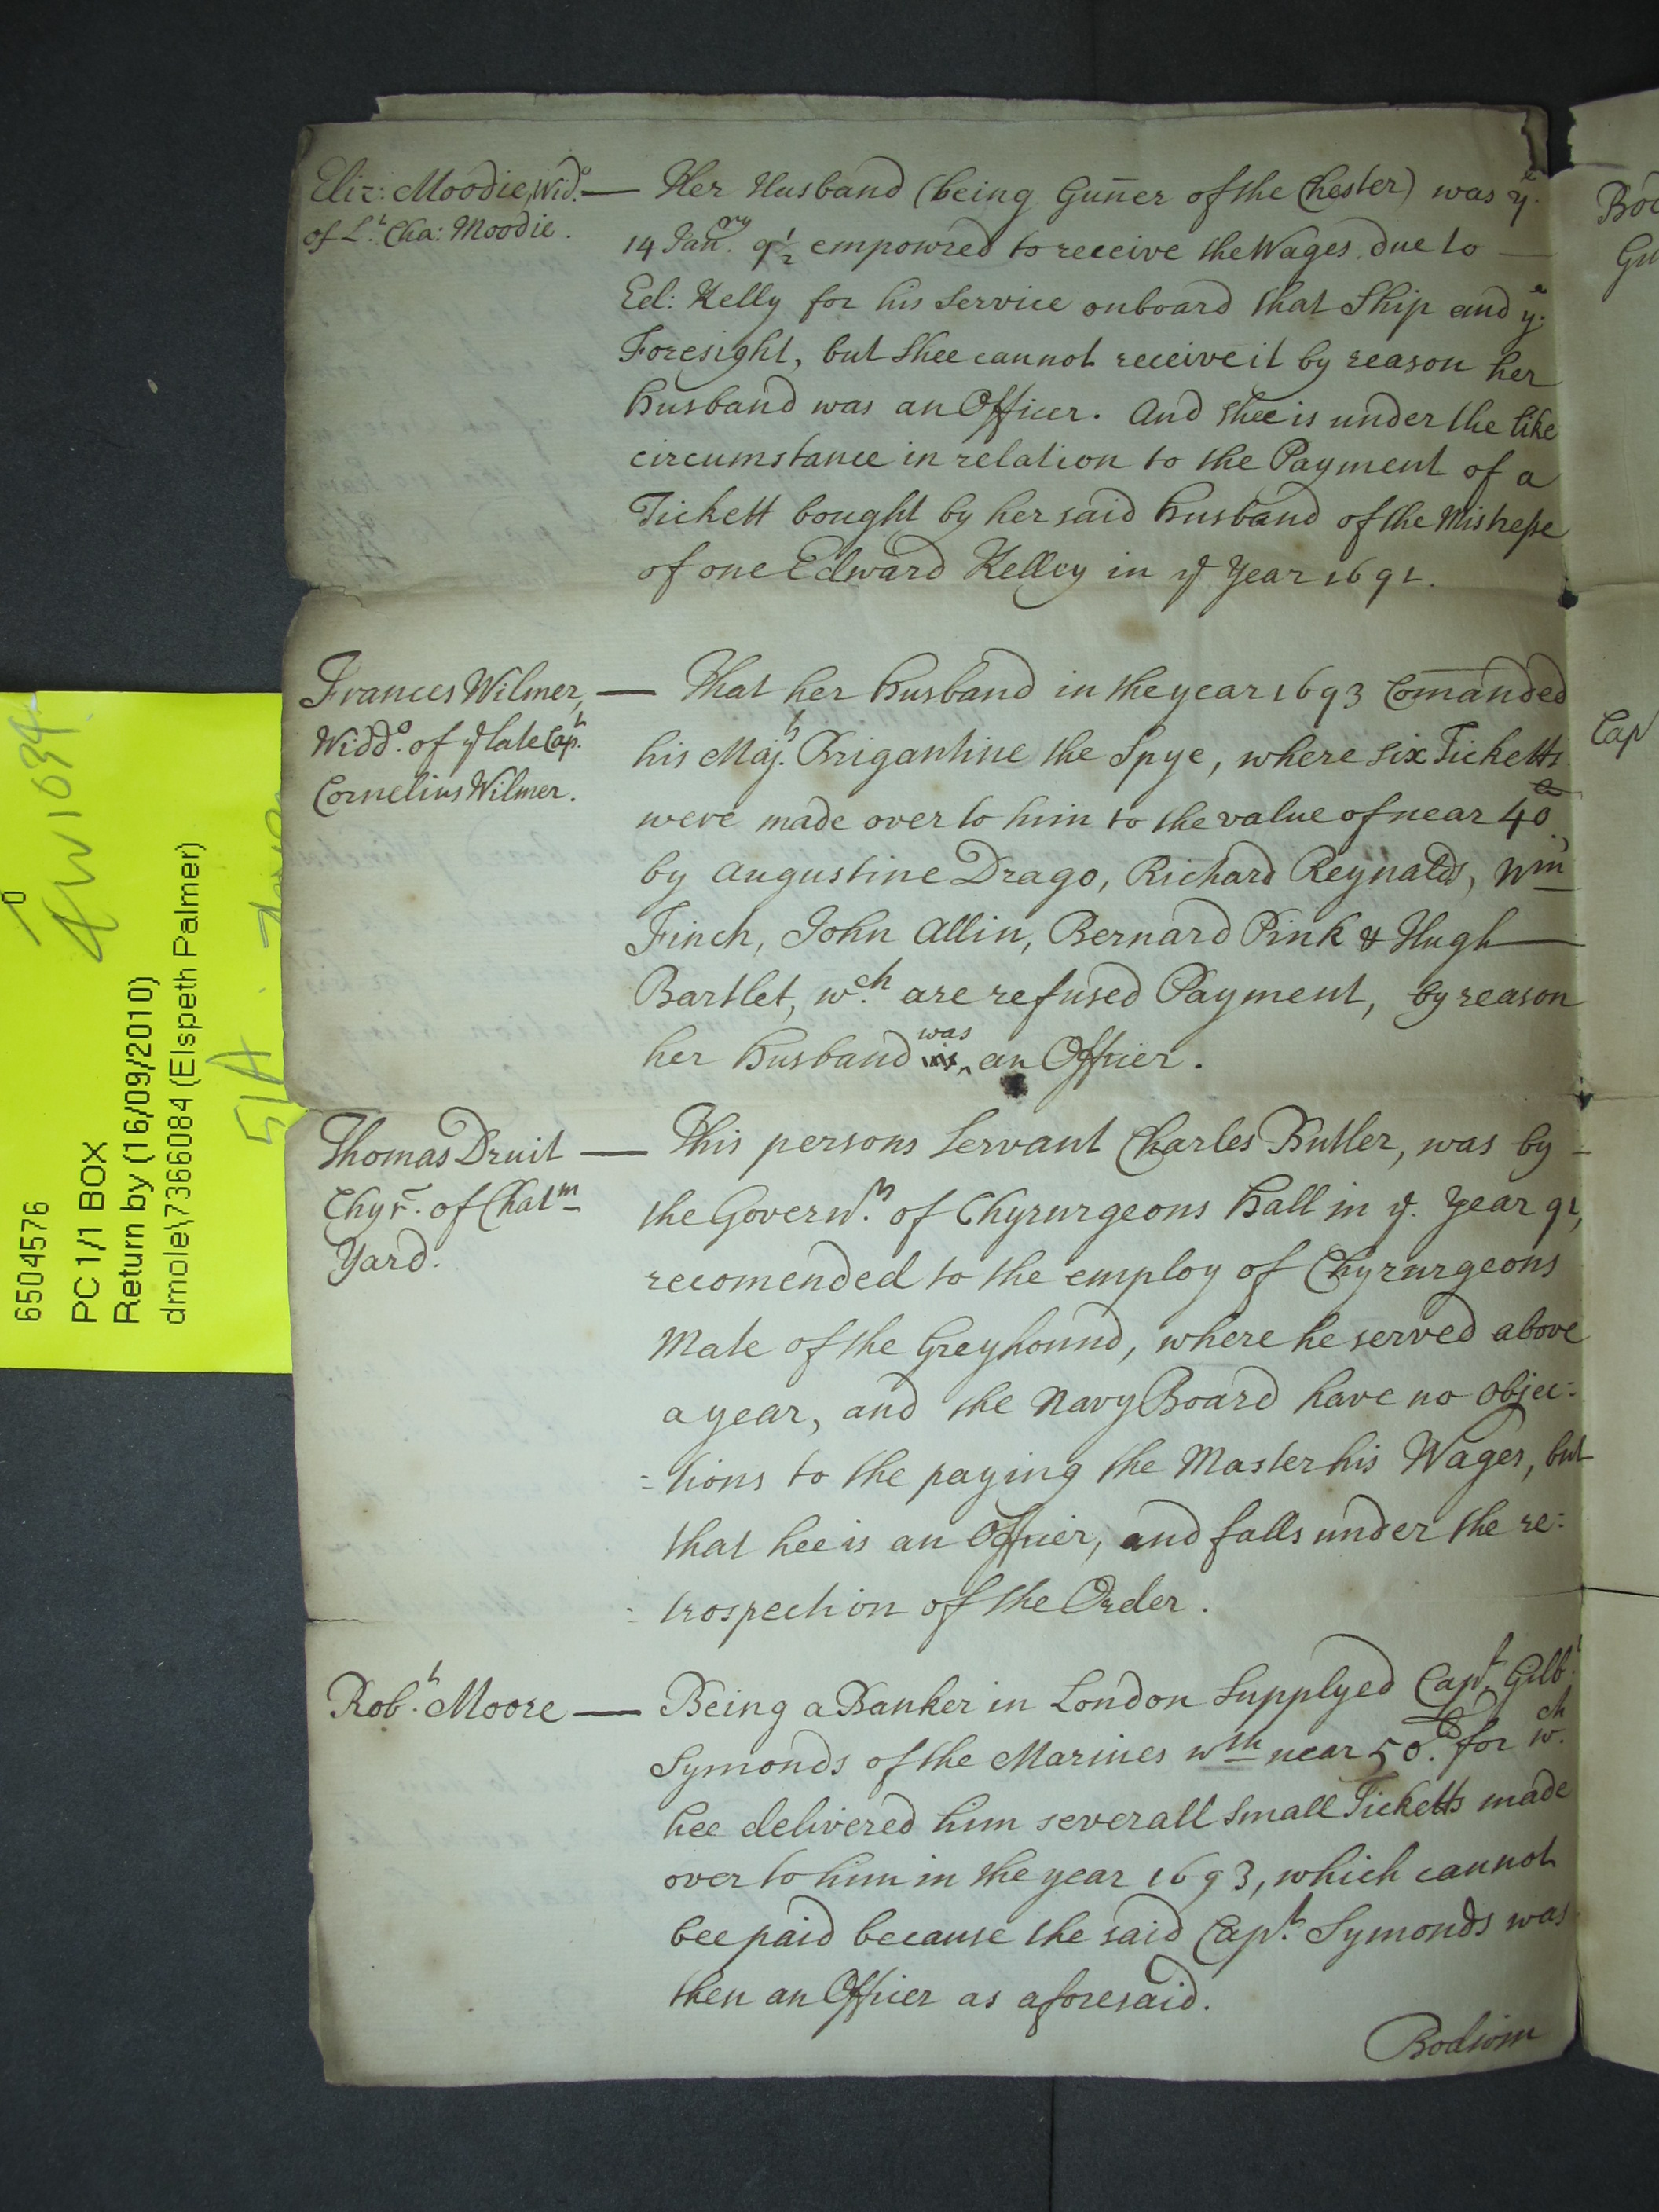 Eliz: Moodie, Wid.o — Her Husband (being Guner of the Chester) was ye
of L.t Cha: Moodie. 14 Jan.ry 9½ empowred to receive the Wages due to —
Ed: Kelly for his Service onboard that Ship and ye
Foresight, but Shee cannot receive it by reason her
husband was an Officer. And shee is under the like
circumstance in relation to the Payment of a
Tickett bought by her said husband of the
of one Edward Kelley in ye Year 1691.
Frances Wilmer, — That her husband in the year 1693 Comanded
Widd.o of ye late Cap.t his Maj.ts Brigantine the Spye, where six Ticketts
Cornelius Wilmer. were made over to him to the value of near 40
by Augustine Drago, Richard Reynalds, Wm
Finch, John Allin, Bernard Pink & Hugh —
Bartlet, w.ch are refused Payment, by reason
her husband was an Officer.
Thomas Druit — This persons Servant Charles Butler, was by -
Chyr. of Chatm the Govern.rs of Chyrurgeons Hall in ye Year 91,
Yard. recomended to the employ of Chyrurgeons
Mate of the Greyhound, where he served above
a year, and the Navy Board have no objec=
=tions to the paying the Master his Wages, but
that hee is an Officer, and falls under the re=
=trospection of the Order.
Rob.t Moore — Being a Banker in London Supplyed Cap.t Gilb.t
Symonds of the Marines wth near 50.£ for w.ch
hee delivered him severall small Ticketts made
over to him in the year 1693, which cannot
bee paid because the said Cap.t Symonds was
then an Officer as aforesaid.
Cap
6504576
PC 1/1 BOX
Return by (16/09/2010)
dmole\7366084 (Elspeth Palmer)